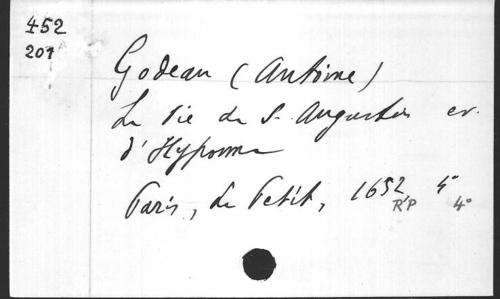 452
207
Godeau (Antoine)
La Vie de S. Augustin ev.
d'Hyponne
Paris, Le Petit, 1652 4°
R'P 4°